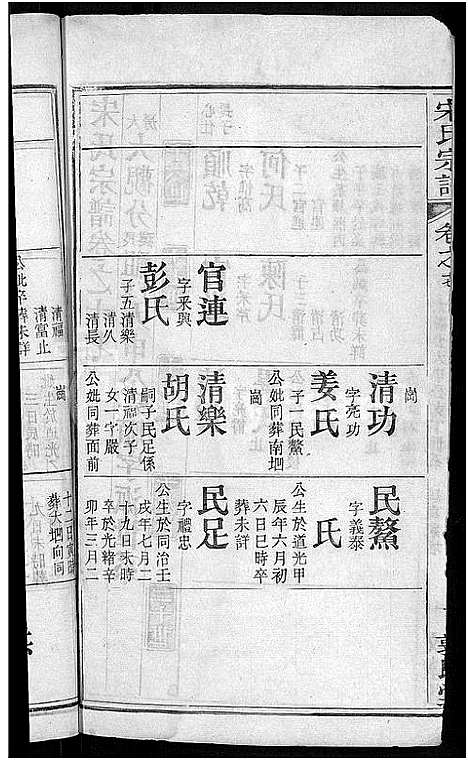 宋氏宗譜
清功
字亮功
姜氏
子一民鰲
公妣同葬南堋
崗
民鰲
字義泰
氏
公生於道光甲
辰年六月初
六日巳時卒
葬未詳
官連
字來興
彭氏
子五清樂
清久
清長
崗
清樂
胡氏
嗣子民足係
清福次子
女一字嚴
公妣同葬面前
民足
字禮忠
公生於同治壬
戌年七月二
十九日未時
卒於光緒辛
卯年三月二
清福
清富止
公妣卒葬未詳
崗
葬大堋向同